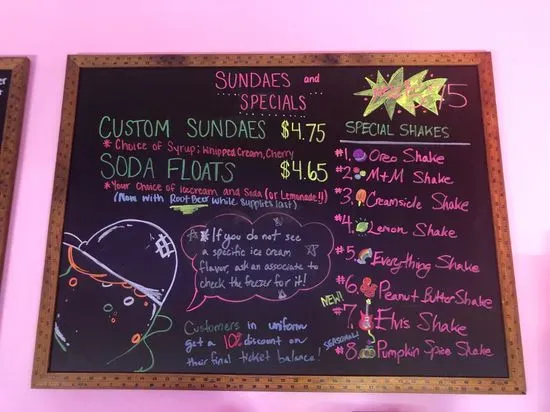 SUNDAES and
SPECIALS
CUSTOM SUNDAES $4.75
* Choice of Syrup, Whipped Cream, Cherry
SODA FLOATS $4.65
* Your Choice of Icecream and Soda (or Lemonade!!)
(Now with Root Beer While Supplies Last)
* If you do not see
a specific ice cream
flavor, ask an associate to
check the freezer for it!
Customers in uniform
get a 10% discount on
their final ticket balance!
SPECIAL SHAKES
#1. Oreo Shake
#2. M+M Shake
#3. Creamsicle Shake
#4. Lemon Shake
#5. Everything Shake
#6. Peanut Butter Shake
NEW!
#7. Elvis Shake
SEASONAL!
#8. Pumpkin Spice Shake